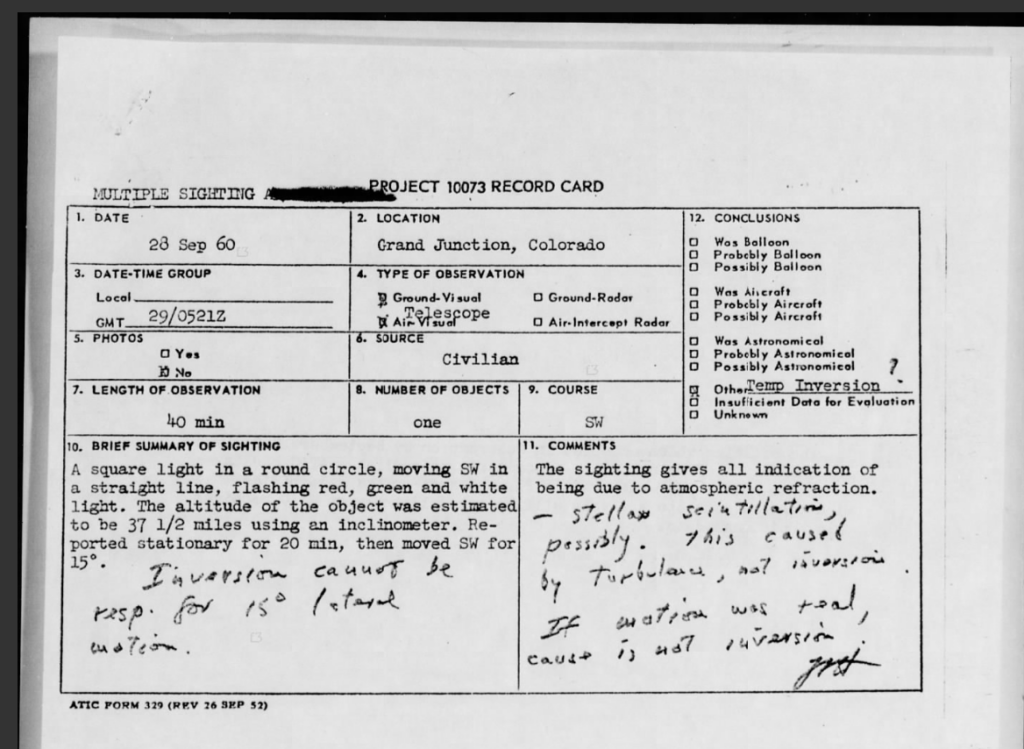 MULTIPLE SIGHTING
PROJECT 10073 RECORD CARD
1. DATE
28 Sep 60
2. LOCATION
Grand Junction, Colorado
3. DATE-TIME GROUP
Local
GMT 29/0521Z
4. TYPE OF OBSERVATION
Ground-Visual
Ground-Radar
Telescope
Air-Visual
Air-Intercept Radar
5. PHOTOS
Yes
No
6. SOURCE
Civilian
7. LENGTH OF OBSERVATION
40 min
8. NUMBER OF OBJECTS
one
9. COURSE
SW
12. CONCLUSIONS
Was Balloon
Probably Balloon
Possibly Balloon
Was Aircraft
Probably Aircraft
Possibly Aircraft
Was Astronomical
Probably Astronomical
Possibly Astronomical
Other Temp Inversion ?
Insufficient Data for Evaluation
Unknown
10. BRIEF SUMMARY OF SIGHTING
A square light in a round circle, moving SW in
a straight line, flashing red, green and white
light. The altitude of the object was estimated
to be 37 1/2 miles using an inclinometer. Re-
ported stationary for 20 min, then moved SW for
15°.
Inversion cannot be
resp. for 15° lateral
motion.
11. COMMENTS
The sighting gives all indication of
being due to atmospheric refraction.
— stellar scintillation,
possibly. This caused
by turbulence, not inversion.
If motion was real,
cause is not inversion.
ATIC FORM 329 (REV 26 SEP 52)